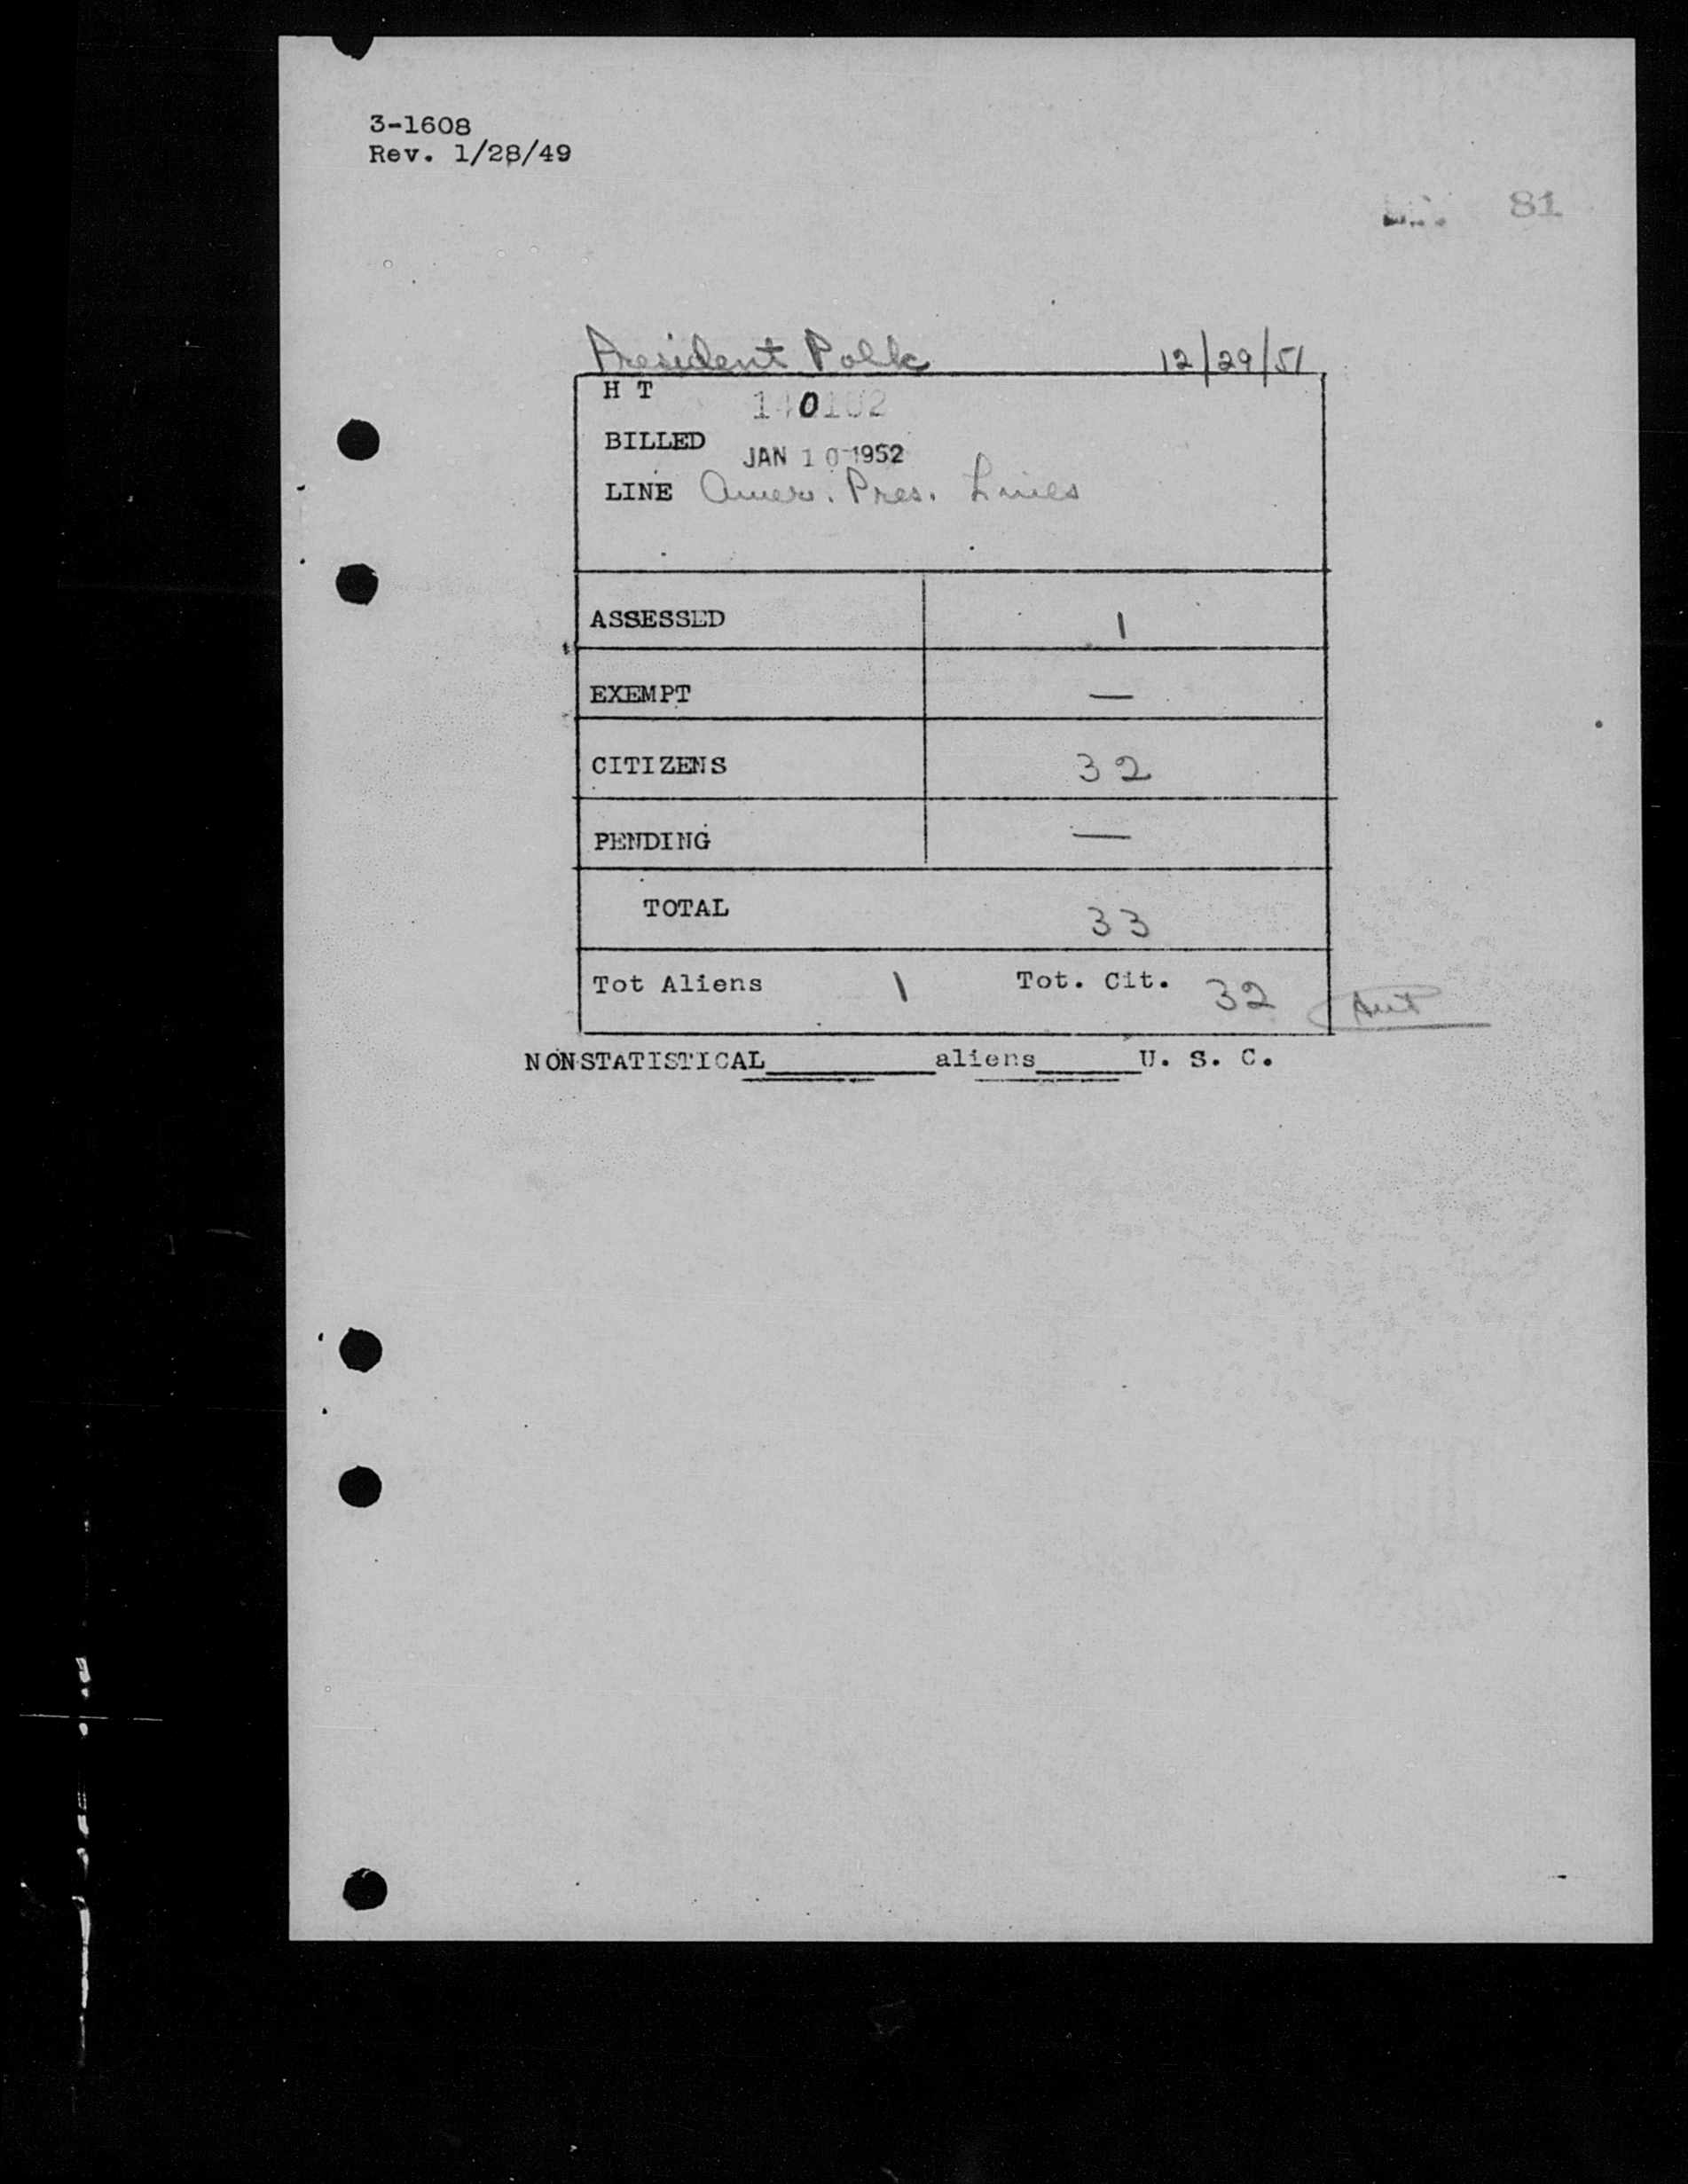 3-1608
Rev. 1/28/49
81
President Polk 12/29/51
H T
BILLED JAN 10 1952
LINE Amer. Pres. Lines
ASSESSED 1
EXEMPT —
CITIZENS 32
PENDING —
TOTAL 33
Tot Aliens 1 Tot. Cit. 32
NONSTATISTICAL________aliens_____U. S. C.